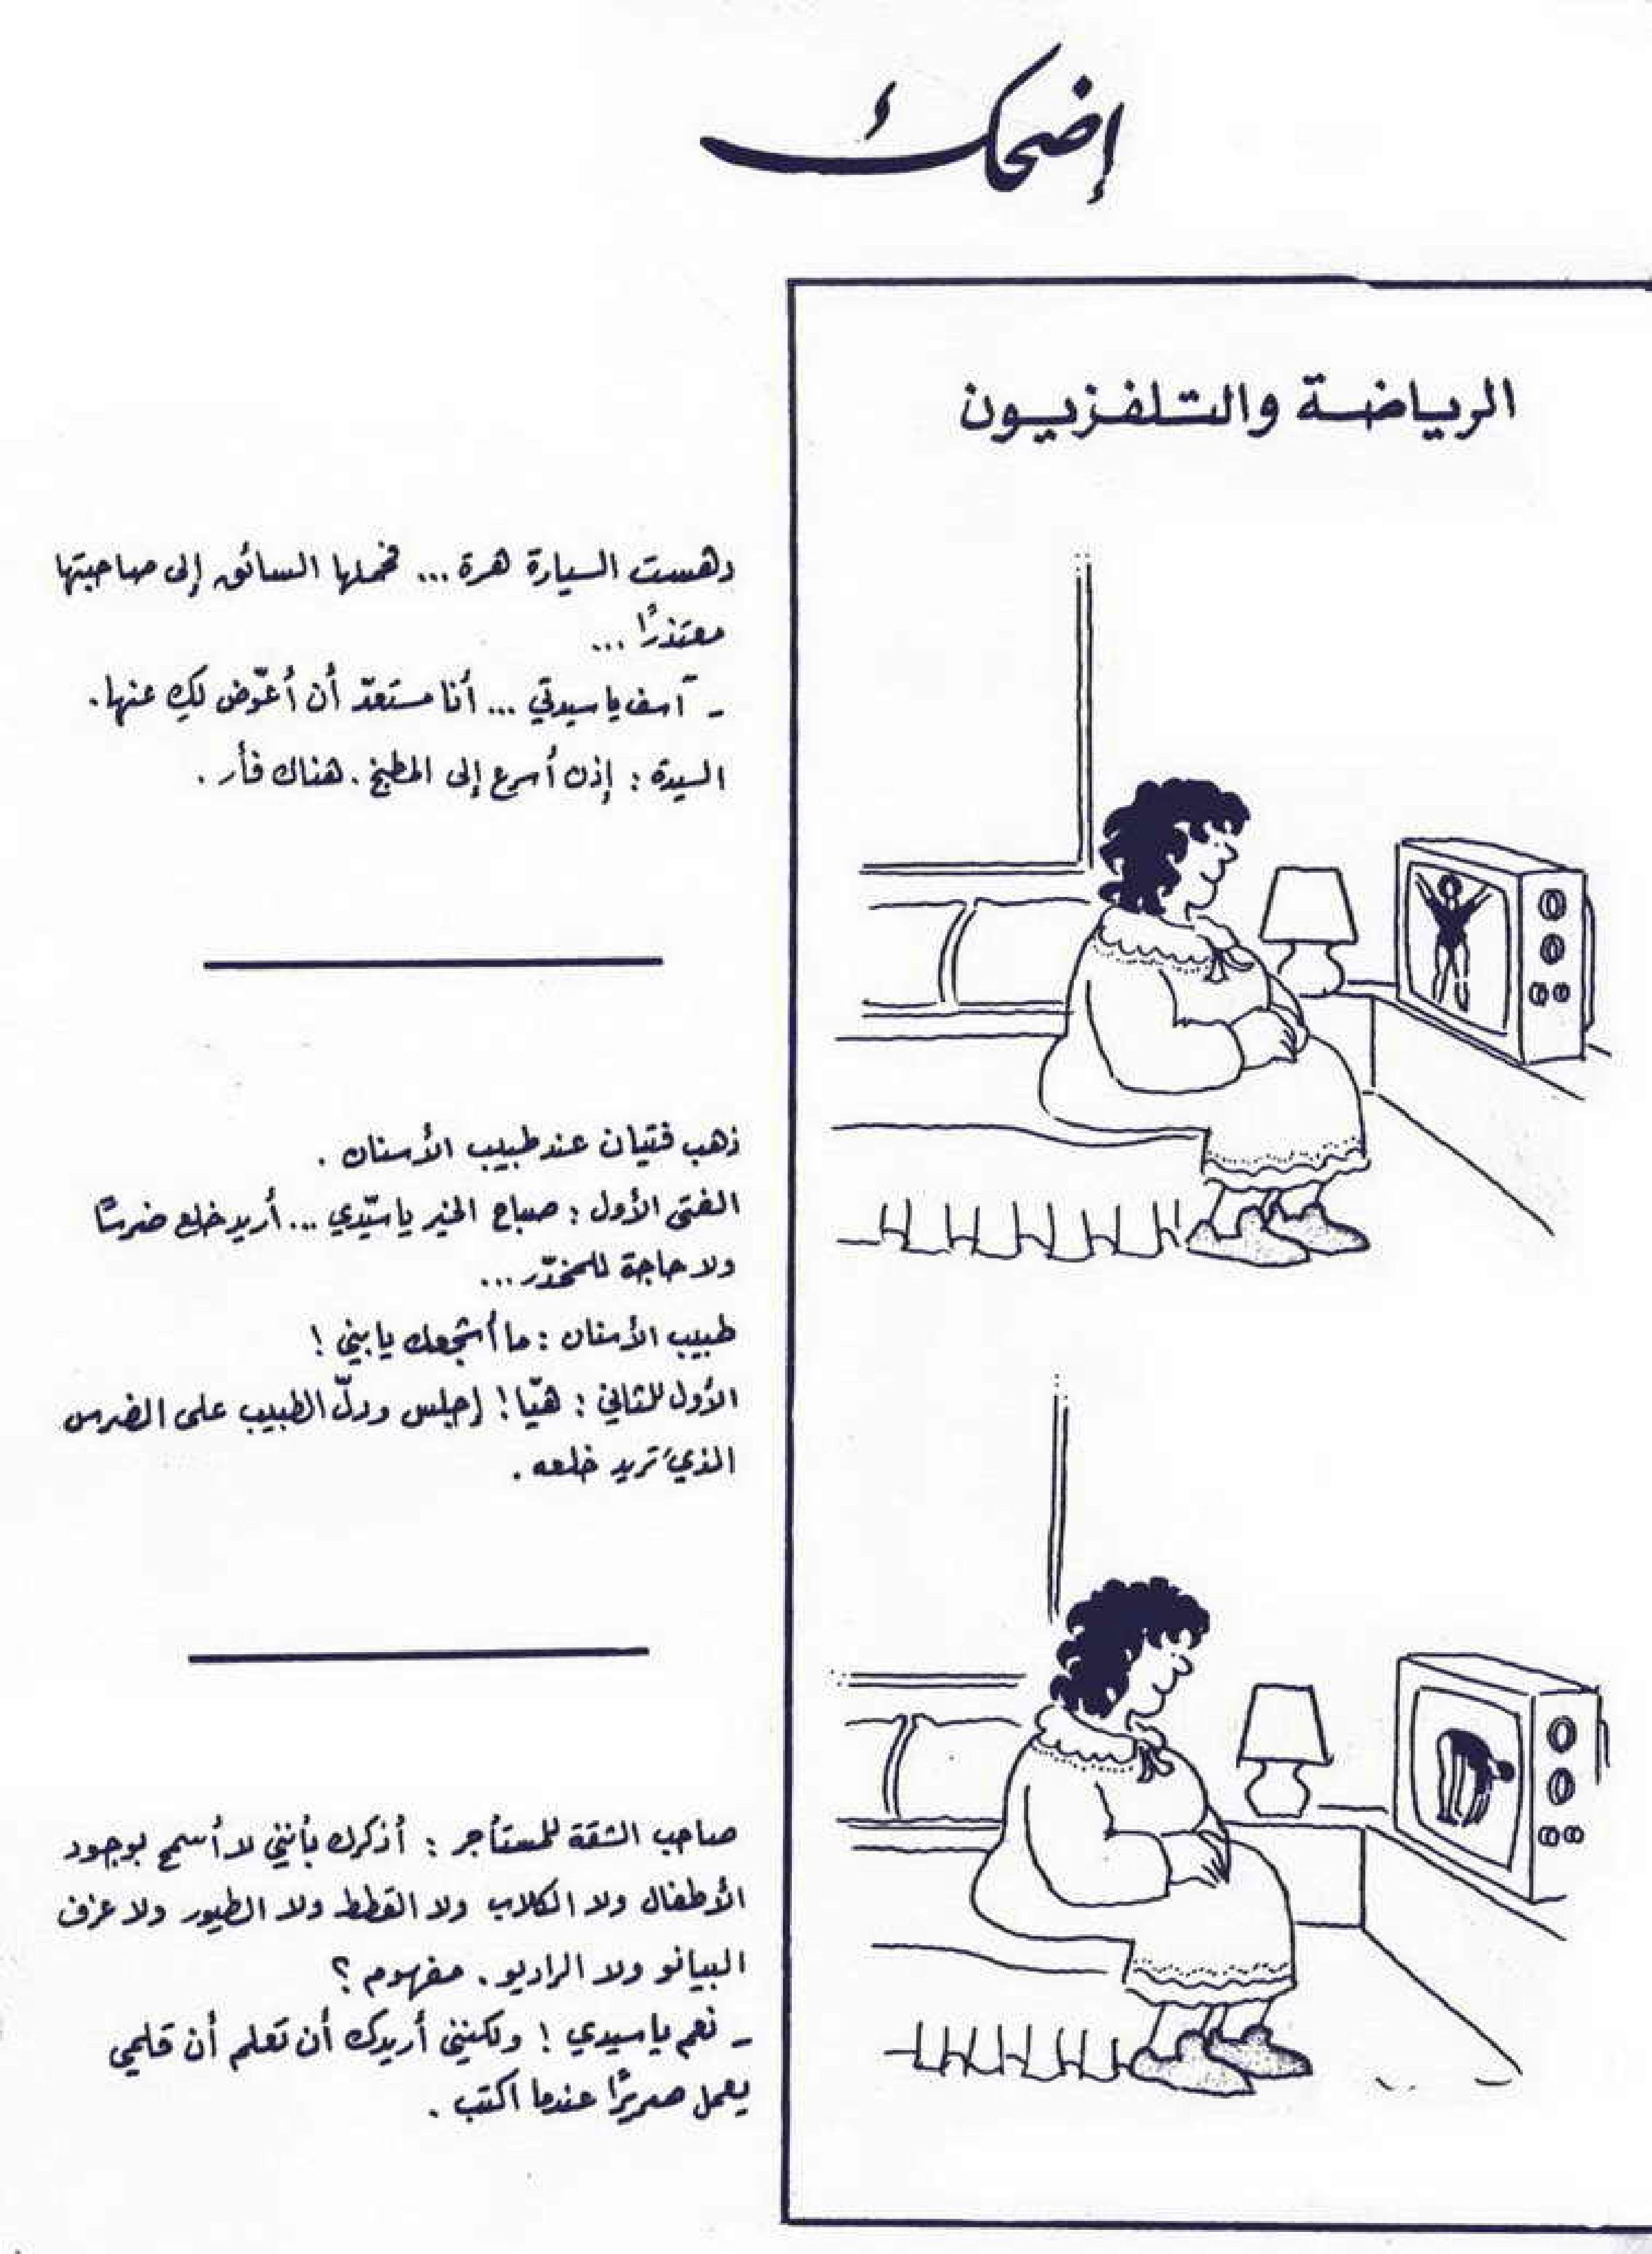 إضحك
الرياضة والتلفزيون
دهست السيارة هرة ... فحملها السائق إلى صاحبتها
معتذرًا ...
ـ آسف يا سيدتي ... أنا مستعدّ أن أعوّض لكِ عنها.
السيدة : إذن أسرع إلى المطبخ . هناك فأر .
ذهب فتيان عند طبيب الأسنان .
الفتى الأول : صباح الخير يا سيّدي ... أريد خلع ضرسًا
ولا حاجة للمخدّر ...
طبيب الأسنان : ما أشجعك يا بني !
الأول للثاني : هيّا ! إجلس ودلّ الطبيب على الضرس
الذي تريد خلعه .
صاحب الشقة للمستأجر : أذكرك بأنني لا أسمح بوجود
الأطفال ولا الكلاب ولا القطط ولا الطيور ولا عزف
البيانو ولا الراديو . مفهوم ؟
ـ نعم يا سيدي ! ولكنني أريدك أن تعلم أن قلمي
يعمل صريرًا عندما اكتب .